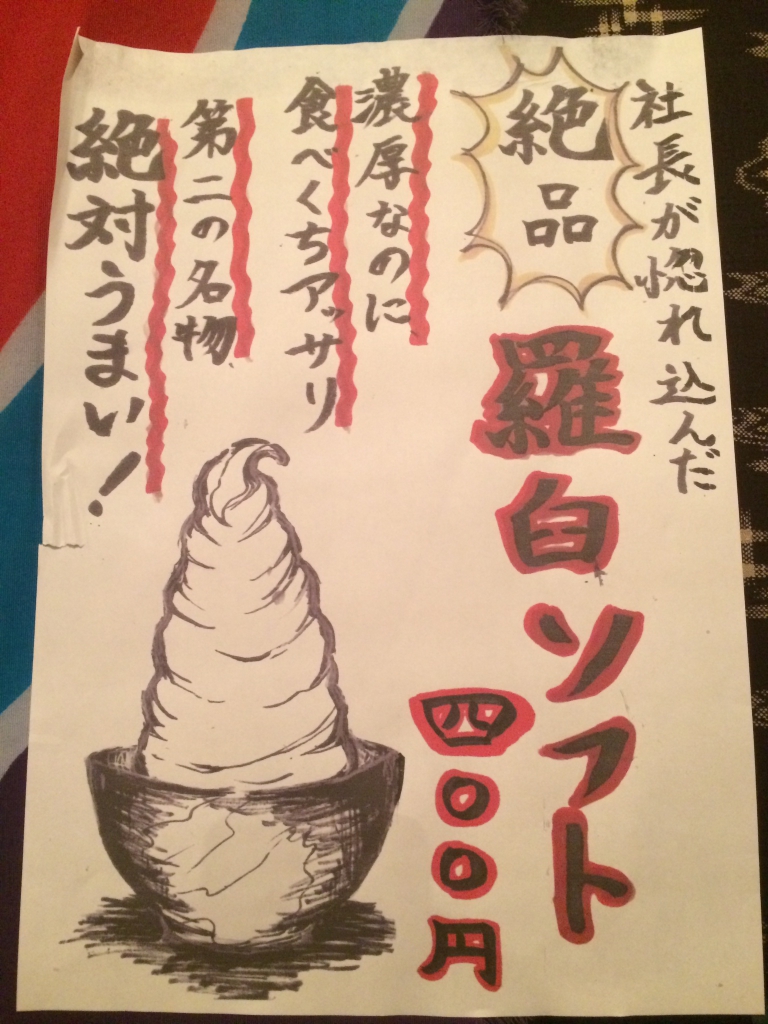 社長が惚れ込んだ
絶品
羅臼ソフト
四〇〇円
濃厚なのに、
食べくちアッサリ
第二の名物、
絶対うまい！